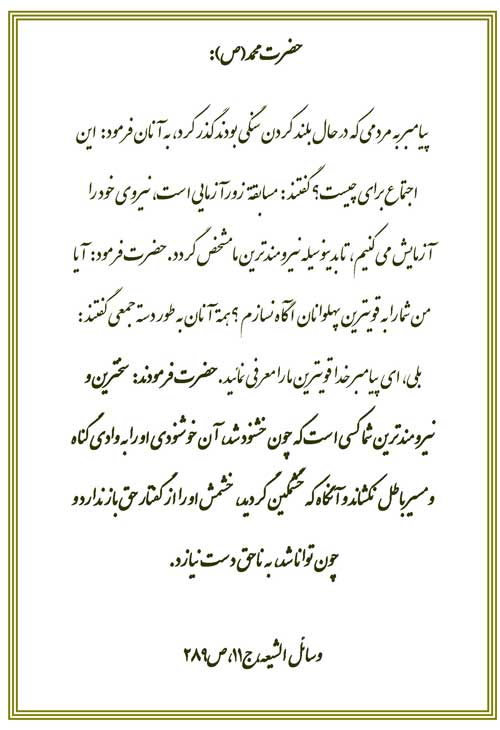 حضرت محمد(ص):
پیامبر به مردمی که در حال بلند کردن سنگی بودند گذر کرد، به آنان فرمود: این
اجتماع برای چیست؟ گفتند: مسابقهٔ زورآزمایی است، نیروی خود را
آزمایش می کنیم، تا بدینوسیله نیرومندترین ما مشخص گردد. حضرت فرمود: آیا
من شما را به قویترین پهلوانان آگاه نسازم؟ همهٔ آنان به طور دسته جمعی گفتند:
بلی، ای پیامبر خدا قویترین ما را معرفی نمائید. حضرت فرمودند: سختترین و
نیرومندترین شما کسی است که چون خشنود شد، آن خوشنودی او را به وادی گناه
و مسیر باطل نکشاند و آنگاه که خشمگین گردید، خشمش او را از گفتار حق باز ندارد و
چون توانا شد، به ناحق دست نیازد.
وسائل الشیعه، ج۱۱، ص۲۸۹